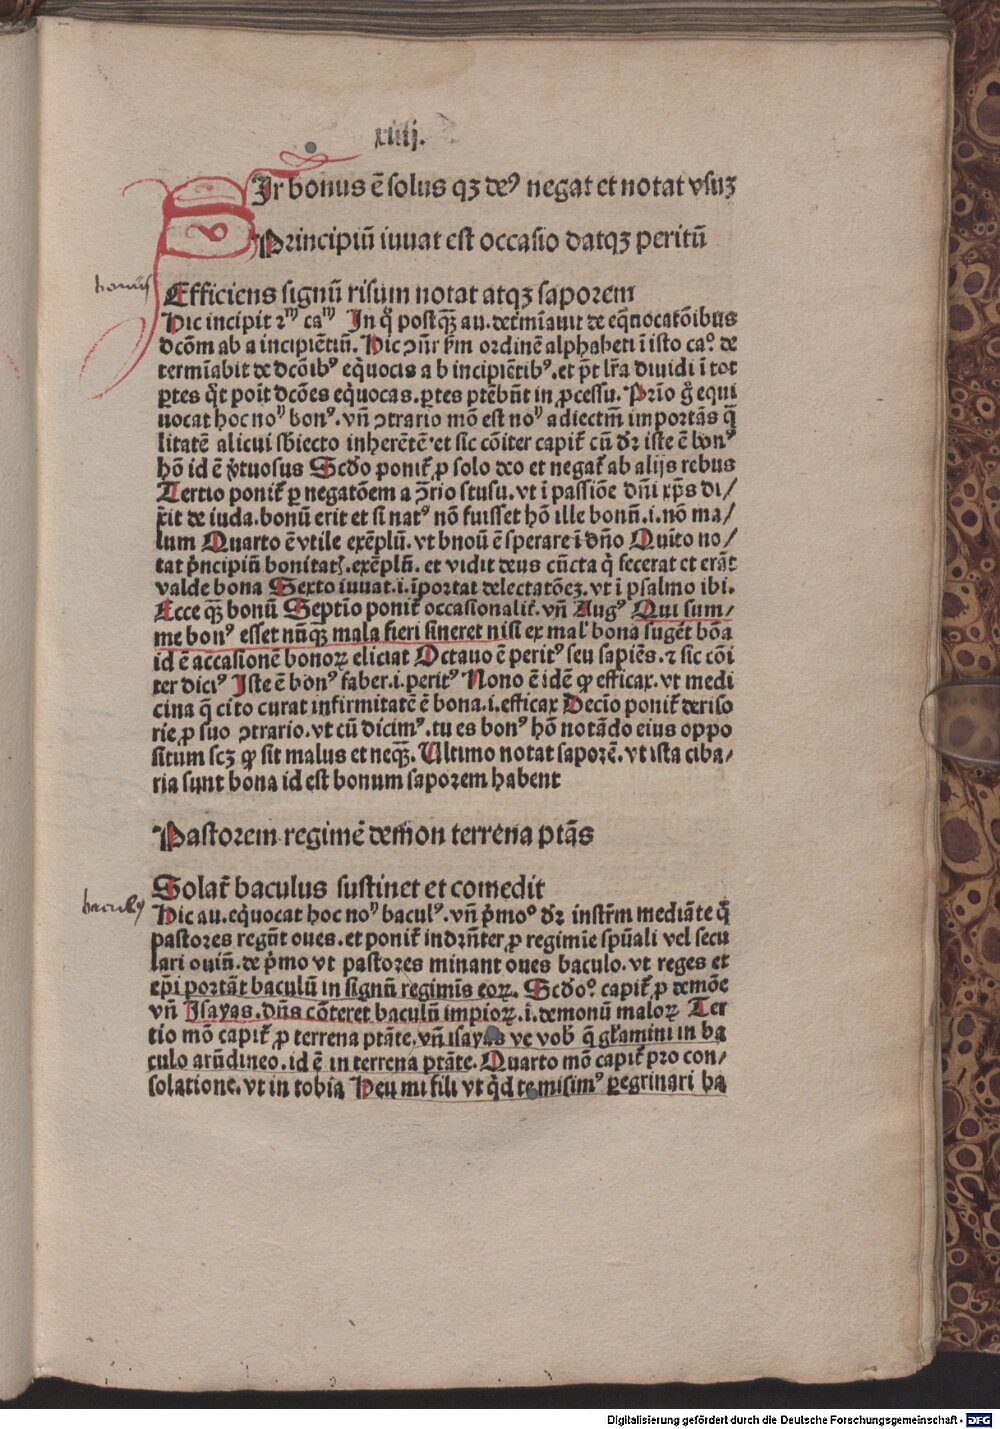 xiiij.
Uir bonus ē solus qʒ deꝰ negat et notat vsuʒ
Principiū iuuat est occasio datqʒ peritū
bonus
Efficiens signū risum notat atqʒ saporem
Hic incipit 2ᵐ caᵐ In q̊ postqʒ̄ au. determīauit de eq̄uocatōibus
dcōm ab a incipiētiū. Hic ɔn̄r ẜm ordinē alphabeti ī isto caº. de
termīabit de dcōibꝰ eq̇uocis a b incipiētibꝰ. et p̄t lr̄a diuidi ī tot
ꝑtes q̇t poīt dcōes eq̇uocas. ꝑtes ptēbūt in ꝓcessu. Prīo g̊ equi
uocat hoc noᵛ bonꝰ. vn̄ ɔtrario mō est noᵛ adiectm̄ importās q̄
litatē alicui sbiecto inherētē et sic cōiter capit̄ cū dr̄ iste ē bonꝰ
hō id ē v̓tuosus Scdo ponit̄ ꝓ solo deo et negat̄ ab alijs rebus
Tertio ponit̄ ꝑ negatōem a ɔ̄rio sensu. vt ī passiōe dn̄i xp̄s di/
xit de iuda. bonū erit et si natꝰ nō fuisset hō ille bonū .i. nō ma/
lum Quarto ē vtile exēplū. vt bnouē sperare ī dn̄o Quīto no/
tat pͥncipiū bonitatꝭ. exēplū. et vidit deus cūcta q̇ fecerat et erāt
valde bona Sexto iuuat .i. īportat delectatōeʒ. vt ī psalmo ibi.
Ecce qʒ̄ bonū Septīo ponit̄ occasionalit̄. vn̄ Augꝰ Qui sum/
me bonꝰ esset nūqʒ̄ mala fieri sineret nisi ex malꝭ bona sugēt bōa
id ē accasionē bonoꝝ eliciat Octauo ē peritꝰ seu sapiēs. ⁊ sic cōi
ter diciꝰ Iste ē bonꝰ faber .i. peritꝰ Nono ē idē ꝙ efficax. vt medi
cina q̄ cito curat infirmitatē ē bona .i. efficax Decīo ponit̄ deriso
rie ꝓ suo ɔtrario. vt cū dicimꝰ. tu es bonꝰ hō notādo eius oppo
situm scʒ ꝙ sit malus et neqʒ̄. Ultimo notat saporē. vt ista ciba/
ria sunt bona id est bonum saporem habent
Pastorem regimē demon terrena ptās
Solat̄ baculus sustinet et comedit
baculus
Hic au. eq̇uocat hoc noᵛ baculꝰ. vn̄ pͥmoº dr̄ instr̄m mediāte q̄
pastores regūt oues. et ponit̄ indrn̄ter ꝓ regimīe spūali vel secu
lari ouiū. de pͥmo vt pastores minant oues baculo. vt reges et
ep̄i portāt baculū in signū regimīs eoꝝ. Scdoº capit̄ ꝓ demōe
vn̄ Isayas. dn̄s cōteret baculū impioꝝ .i. demonū maloꝝ Ter
tio mō capit̄ ꝓ terrena ptāte. vn̄ isayas ve vob̄ q̇ gl̄amini in ba
culo arūdineo. id ē in terrena ptāte. Quarto mō capit̄ pro con/
solatione. vt in tobia Heu mi fili vt q̇d te misimꝰ ꝑegrinari ba
Digitalisierung gefördert durch die Deutsche Forschungsgemeinschaft - DFG